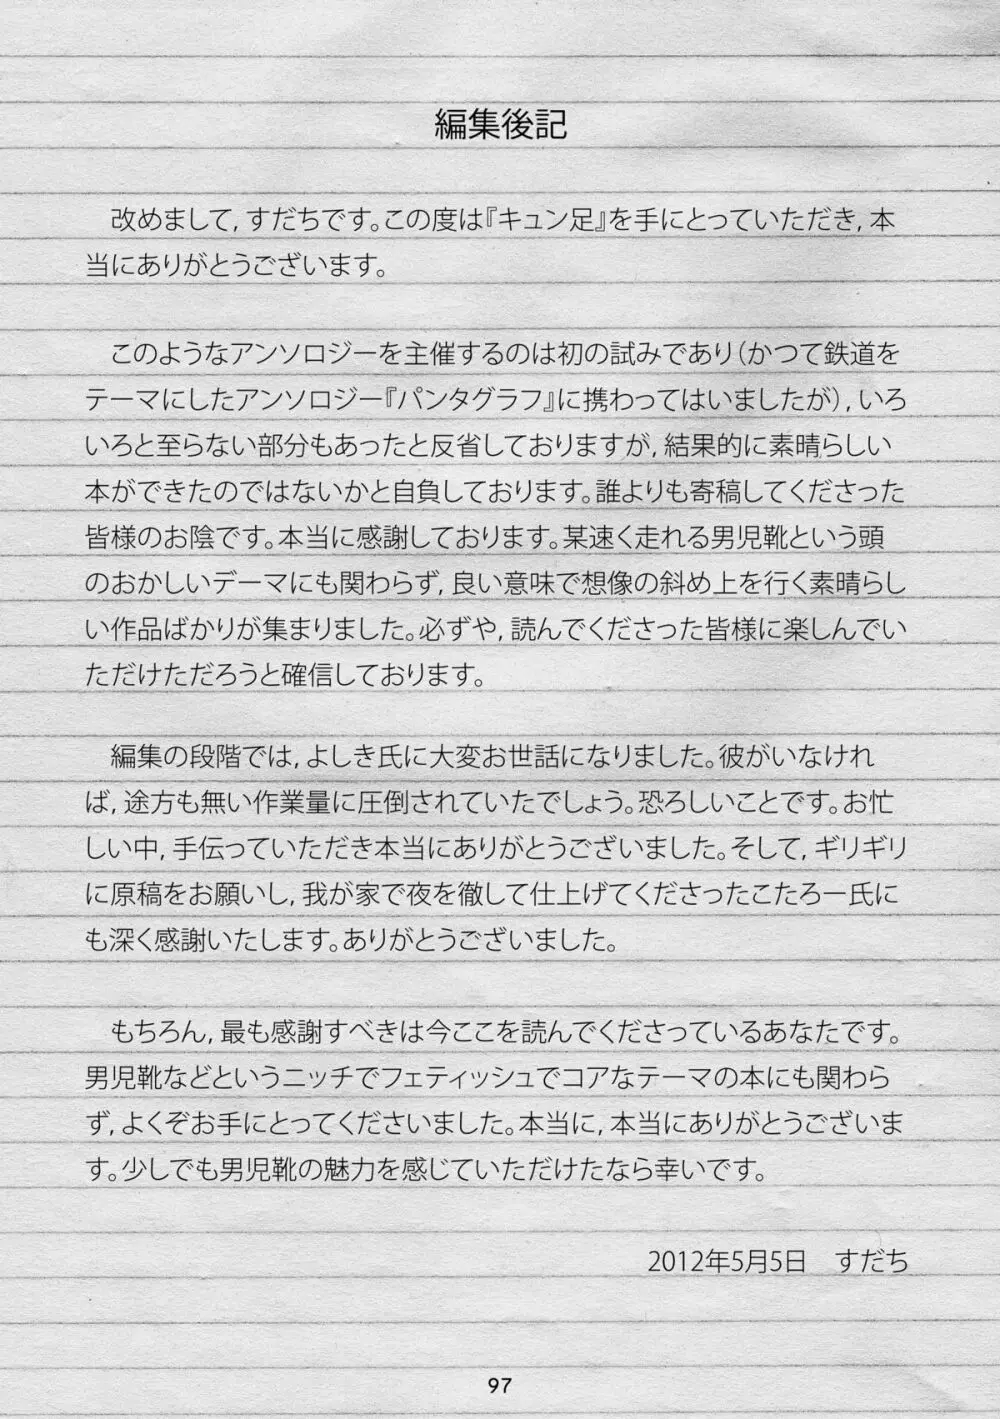 編集後記
改めまして, すだちです。この度は『キュン足』を手にとっていただき, 本
当にありがとうございます。
このようなアンソロジーを主催するのは初の試みであり（かつて鉄道を
テーマにしたアンソロジー『パンタグラフ』に携わってはいましたが）, いろ
いろと至らない部分もあったと反省しておりますが, 結果的に素晴らしい
本ができたのではないかと自負しております。誰よりも寄稿してくださった
皆様のお陰です。本当に感謝しております。某速く走れる男児靴という頭
のおかしいデーマにも関わらず, 良い意味で想像の斜め上を行く素晴らし
い作品ばかりが集まりました。必ずや, 読んでくださった皆様に楽しんでい
ただけただろうと確信しております。
編集の段階では, よしき氏に大変お世話になりました。彼がいなけれ
ば, 途方も無い作業量に圧倒されていたでしょう。恐ろしいことです。お忙
しい中, 手伝っていただき本当にありがとうございました。そして, ギリギリ
に原稿をお願いし, 我が家で夜を徹して仕上げてくださったこたろー氏に
も深く感謝いたします。ありがとうございました。
もちろん, 最も感謝すべきは今ここを読んでくださっているあなたです。
男児靴などというニッチでフェティッシュでコアなテーマの本にも関わら
ず, よくぞお手にとってくださいました。本当に, 本当にありがとうございま
す。少しでも男児靴の魅力を感じていただけたなら幸いです。
2012年5月5日　すだち
97